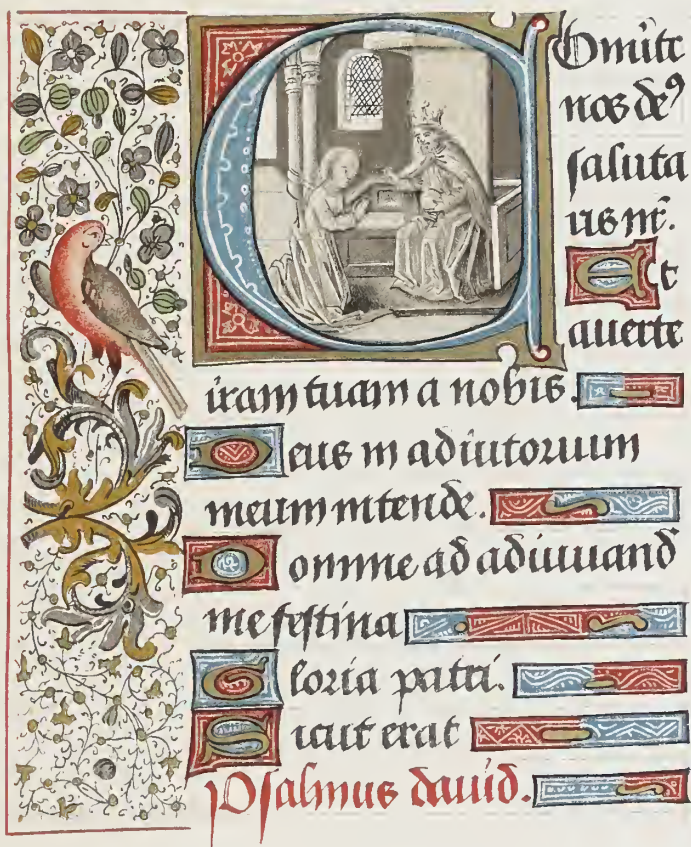 Conūte
nos deꝰ
saluta
ris nr̄.
Et
auerte
iram tuam a nobis.
Deus in adiutorium
meum intende.
Domine ad adiuuand
me festina
Gloria patri.
Sicut erat
Psalmus dauid.